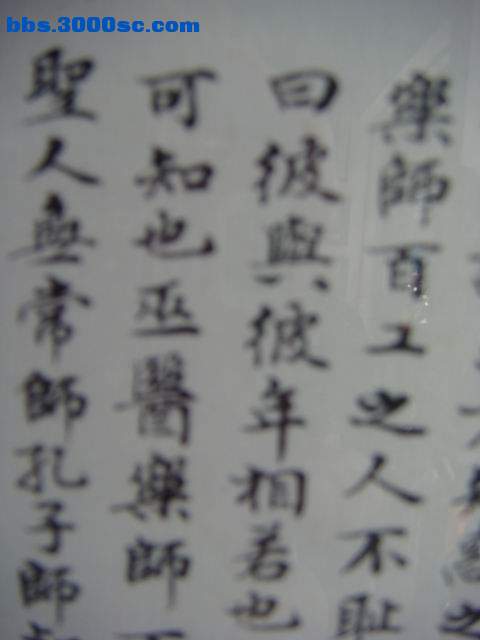 bbs.3000sc.com
樂師百工之人不耻
曰彼與彼年相若也
可知也巫醫樂師
聖人無常師孔子師